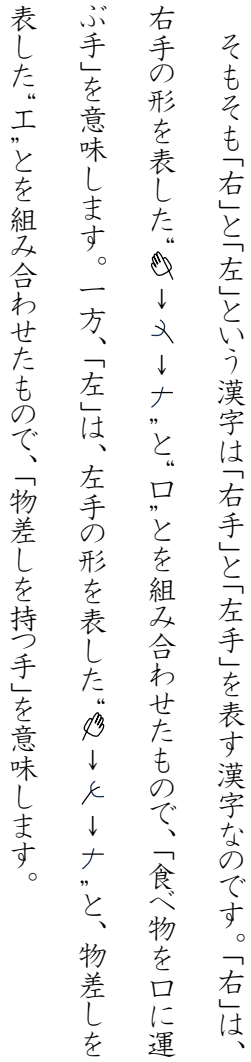 そもそも「右」と「左」という漢字は「右手」と「左手」を表す漢字なのです。「右」は、
右手の形を表した“→→ナ”と“口”とを組み合わせたもので、「食べ物を口に運
ぶ手」を意味します。一方、「左」は、左手の形を表した“→→ナ”と、物差しを
表した“工”とを組み合わせたもので、「物差しを持つ手」を意味します。